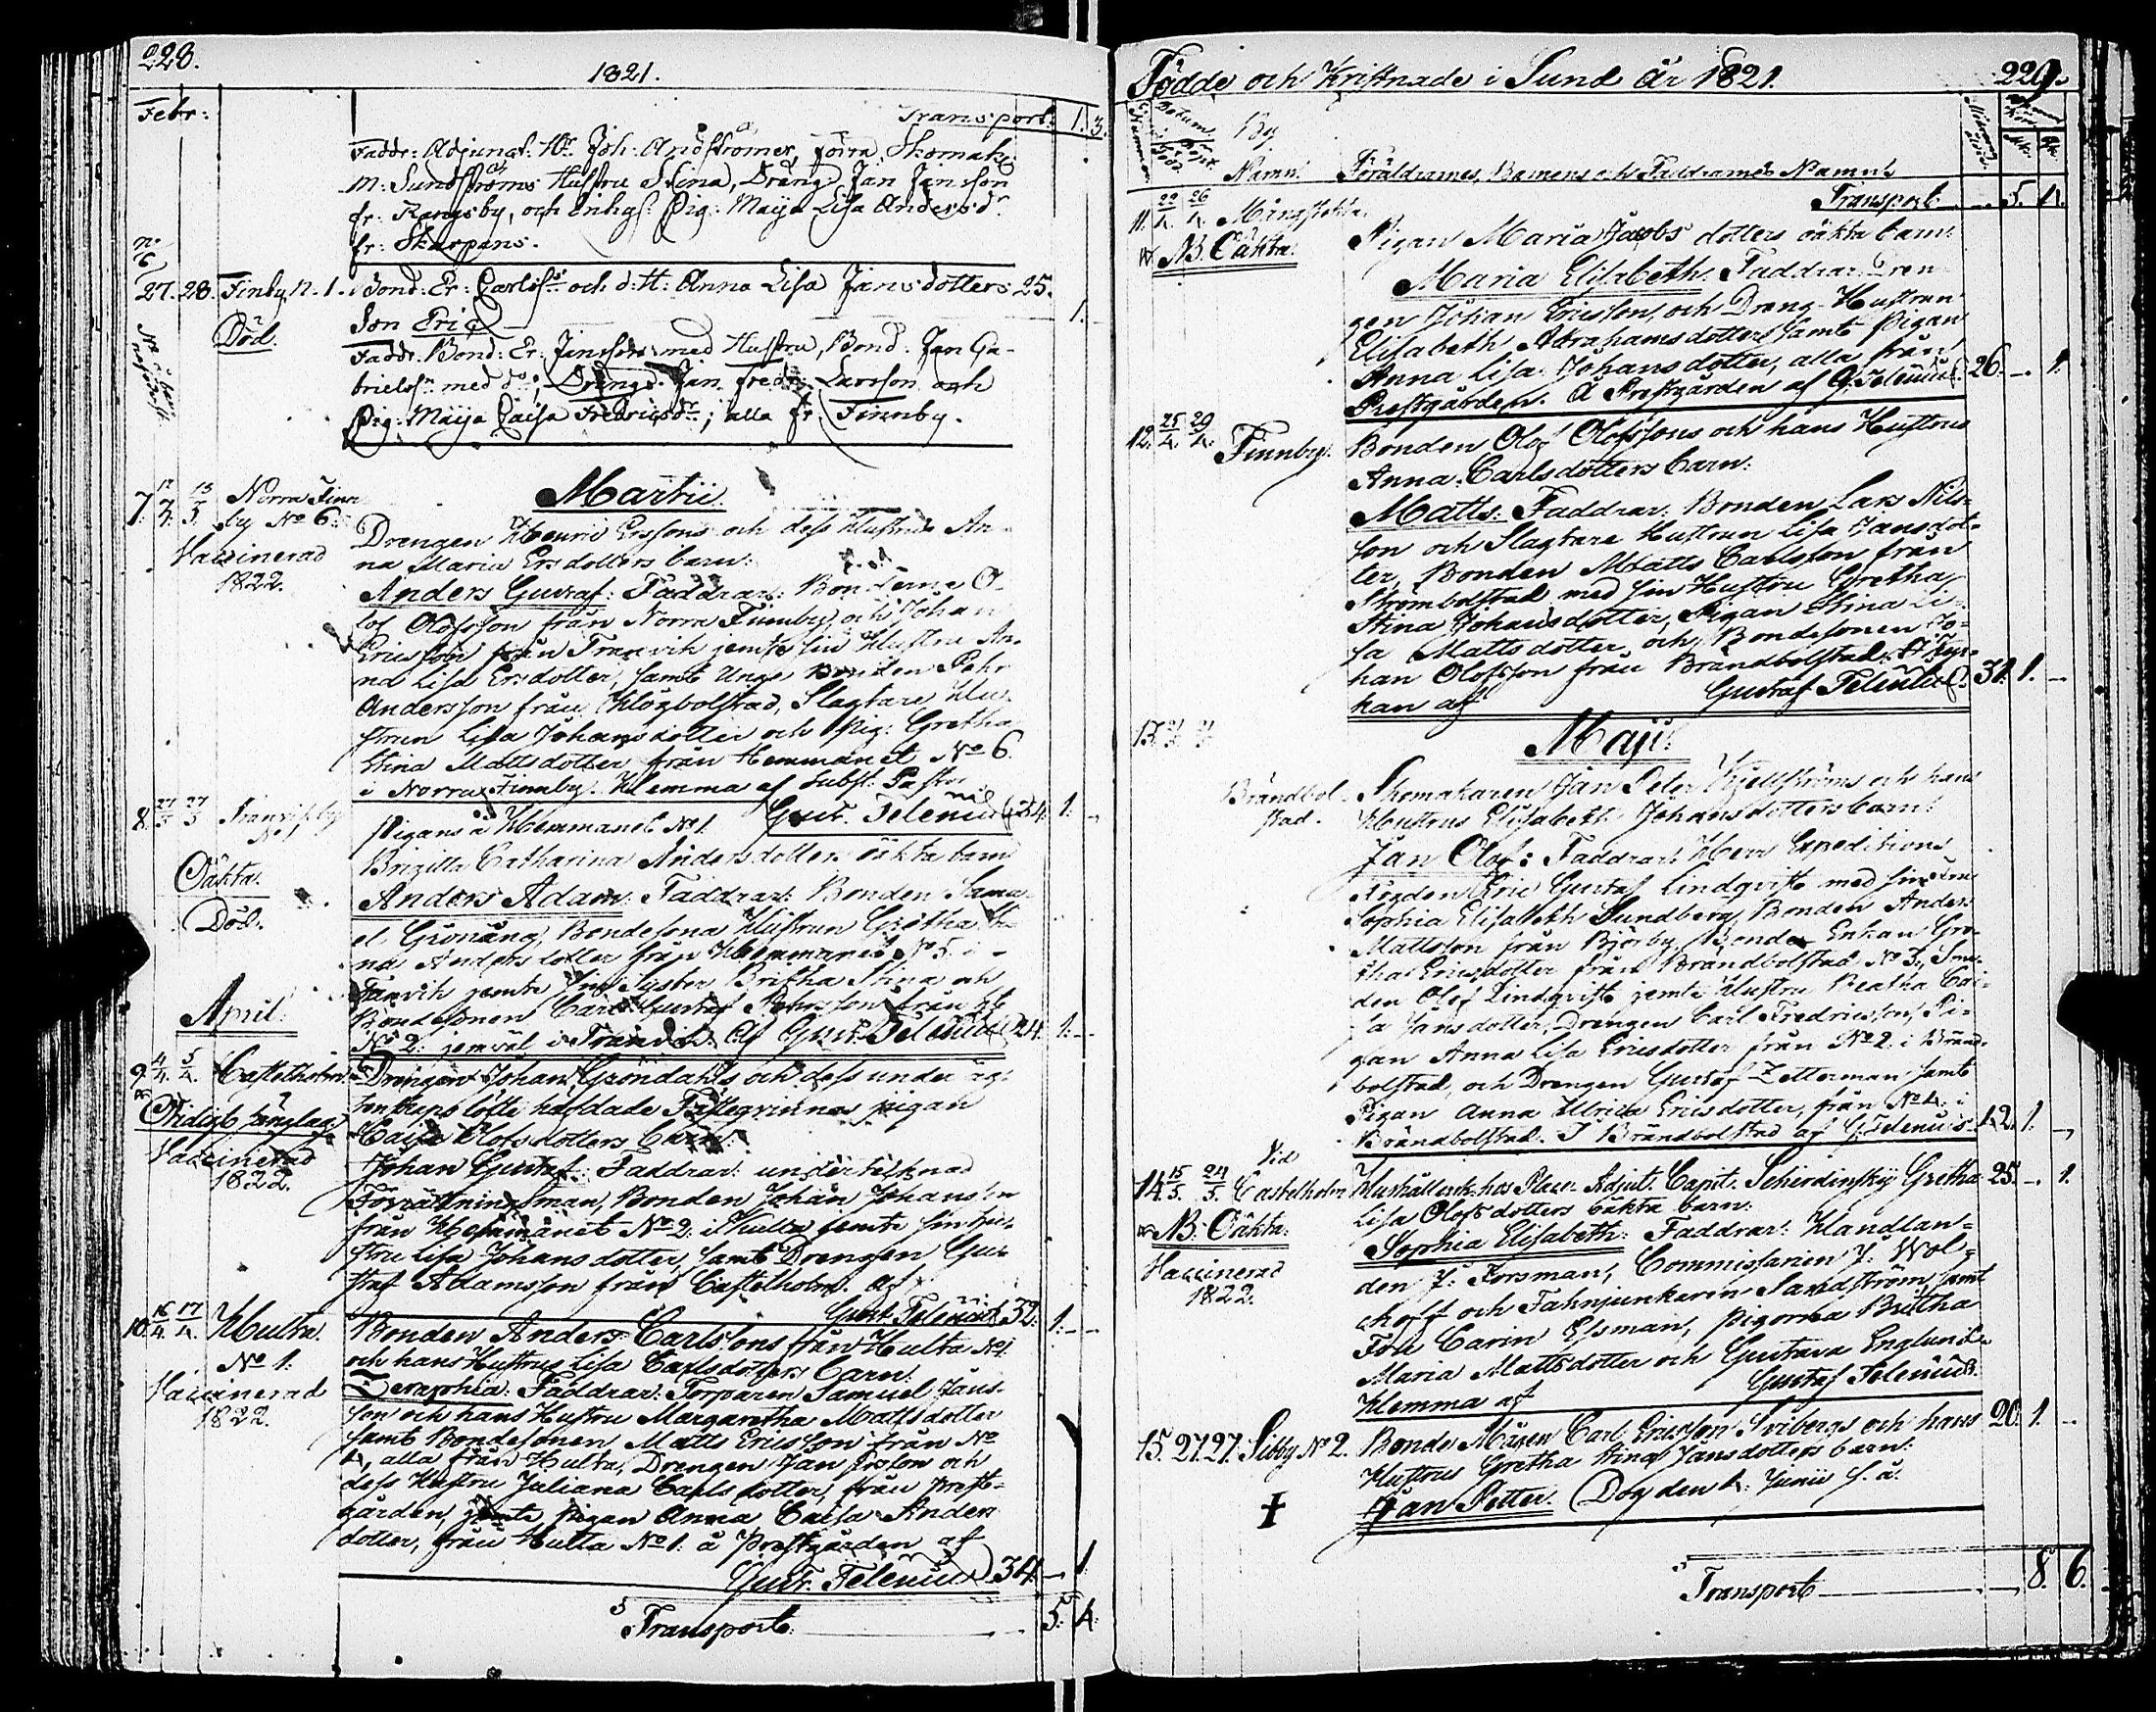 228.
1821.
Febr:
Transport. 1. 3.
Fadde: Adjunct: Hr Joh: Andströmer, Förra Skomak:
M: Sundströms Hustru Stina, Dräng: Jan Jansson
fr: Rangsby, och Enkgs: Pig: Maija Lisa Andersdr
fr: Skarpans.
No 6
27. 28. Finby N. 1. Bond: Er: Carlss. och d: H: Anna Lisa Jansdotters 25.
Son Eric 1.
Död.
Fadd: Bond: Er: Jansson med Hustru, Bond: Jan Ga-
brielss. med do; Dränge: Jan Fredr: Larsson och
Pig: Maija Caisa Fredricsdr; alla fr: Finnby.
Martii.
7. 12/3. 13/3. Norra Finn-
by No 6.
Vaccinerad
1822.
Drengen Henric Erssons och dess Hustrus An-
na Maria Ersdotters barn:
Anders Gustaf: Faddrar: Bönderne O-
lof Olofsson från Norra Finnby, och Johan
Ericsson från Tranvik jemte sin Hustru An-
na Lisa Ersdotter, samt Unge Bonden Pehr
Andersson från Högbolstad, Slagtare Hu-
strun Lisa Johansdotter och Pig: Gretha
Stina Mattsdotter från Hemmanet No 6
i Norra Finnby. Hemma af Subst: Pastor
Gust. Felenius 24. 1. -
8. 27/3 27/3 Tranviksby
No 1
Oäkta.
Död.
Pigans å Hemmanet No 1.
Brigitta Catharina Andersdotters oäkta barn
Anders Adam: Faddrar: Bonden Samu-
el Grönäng, Bondesona Hustrun Gretha Sti-
na Andersdotter från Hemmanet No 5 i
Tranvik jemte sin Syster Britha Stina och
Bondesonen Carl Gustaf Pehrsson från
No 2. jemväl i Tranvik. Af Gust. Felenius 24. 1. -
April.
9. 4/4. 5/4. Castelholm.
Oridigt sänglag.
Vaccinerad
1822.
Drengen Johan Gröndahls och dess under äg-
tenskaps löfte häfdade Fästeqvinnas pigan
Caisa Olofsdotters barn:
Johan Gustaf: Faddrar: undertecknad
Förrättningsman, Bonden Johan Johansson
från Hemmanet No 2. i Kulla jemte sin Hu-
stru Lisa Johansdotter, samt Drengen Gu-
staf Adamsson från Castelholm. Af
Gust. Felenius 32. 1. -
10. 16/4. 17/4. Hulta.
No 1.
Vaccinerad
1822.
Bonden Anders Carlssons från Hulta No 1.
och hans Hustrus Lisa Carlsdotters barn:
Seraphia: Faddrar: Torparen Samuel Jans-
son och hans Hustru Margaretha Mattsdotter
samt Bondesonen Matts Ericsson från No
4, alla från Hulta, Drengen Jan Jansson och
dess Hustru Juliana Carlsdotter, från Prest-
gården, jemte pigan Anna Caisa Anders-
dotter, från Hulta No 1. å Prestgården af
Gust. Felenius 34. - 1.
Transport: 5. 4.
Födde och Kristnade i Sund år 1821. 229.
Nummer Datum. Född Döpt By Namn. Föräldrarnes, Barnens och Faddrarnes Namn.
Transport - 5. 4.
11. 22/4. 26/4. Mångstekta.
NB. Oäkta.
Pigan Maria Jacobs dotters oäkta barn:
Maria Elisabeth. Faddrar: Dren-
gen Johan Ericsson, och Dreng-Hustrun
Elisabeth Abrahamsdotter samt Pigan
Anna Lisa Johansdotter, alla från
Prestgården. Å Prestgården af G. Felenius. 26. - 1.
12. 25/4. 29/4. Finnby.
Bonden Olof Olofssons och hans Hustrus
Anna Carlsdotters barn:
Matts: Faddrar: Bonden Lars Nils-
son och Slagtare Hustrun Lisa Jansdot-
ter, Bonden Matts Carlsson från
Strömbolstad med sin Hustru Gretha
Stina Johansdotter, Pigan Stina Li-
sa Mattsdotter, och Bondesonen Jo-
han Olofsson från Brändbolstad. I Kyr-
kan af Gustaf Felenius. 31. 1. -
Maji.
13.
Brändbol-
stad.
Skomakaren Jan Peter Kjellströms och hans
Hustrus Elisabeth Johansdotters barn:
Jan Olof: Faddrar: Herr Expeditions
Fogden Eric Gustaf Lindqvist med sin Fru
Sophia Elisabeth Sundberg, Bonden Anders
Mattsson från Björby, Bonde Enkan Gre-
tha Ericsdotter från Brändbolstad No 3, Sme-
den Olof Lindqvist jemte Hustru Beatha Cai-
sa Jansdotter, Drengen Carl Fredricsson, Pi-
gan Anna Lisa Ericsdotter från No 2. i Bränd-
bolstad, och Drengen Gustaf Zetterman samt
Pigan Anna Ulrica Ericsdotter, från No 4. i
Brändbolstad. I Brändbolstad af G. Felenius. 42. 1. -
14. 15/5. 24/5. Vid Castelholm
NB. Oäkta.
Vaccinerad
1822.
Hushållersk: hos Place-Adjut: Capit: Schirdinskij Gretha 25. - 1.
Lisa Olofsdotters oäkta barn:
Sophia Elisabeth: Faddrar: Handlan-
den J: Forsman, Commissarien J: Wol-
choff och Fahnjunkaren Sandström, samt
Fru Carin Essman, pigorna Britha
Maria Mattsdotter och Gustava Englund.
Hemma af Gustaf Felenius.
15. 27. 27. Sibby No 2. Bonde Mågen Carl Ericsson Svibergs och hans 20. 1. -
Hustrus Gretha Stina Jansdotters barn:
Jan Petter. Dog den 4: Junii s. å.
Transport 8. 6.